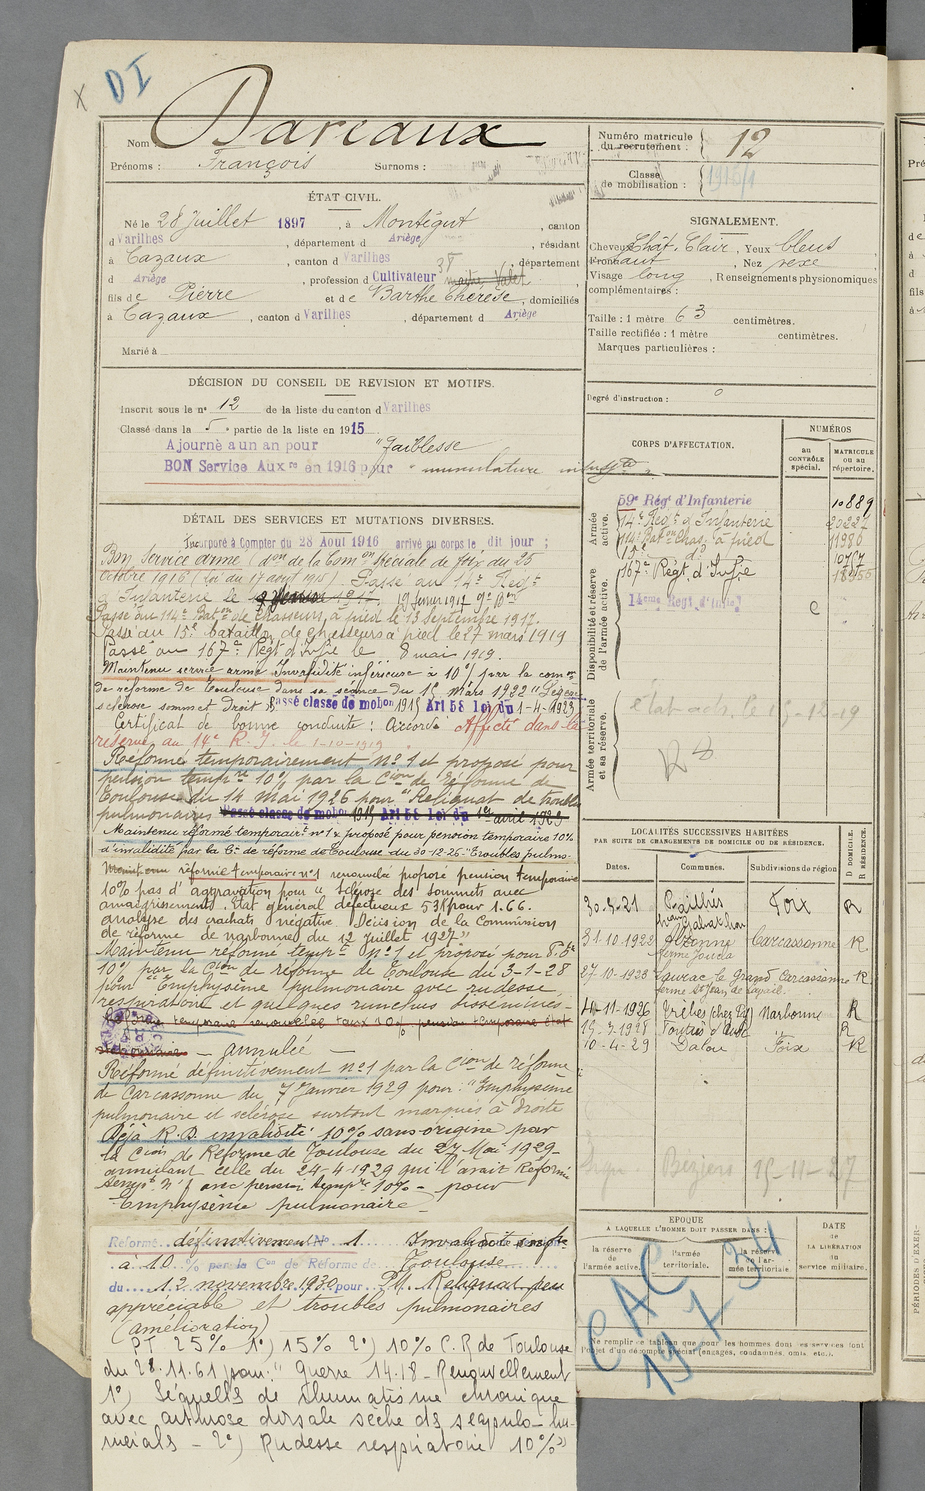 X DI
Nom : Dareaux
Prénoms : François Surnoms :
ÉTAT CIVIL.
Né le 28 Juillet 1897, à Montégut, canton
d Varilhes, département d Ariège, résidant
à Cazaux, canton d Varilhes, département
d Ariège, profession d Cultivateur
fils de Pierre et de Barthe Thérèse, domiciliés
à Cazaux, canton d Varilhes, département d Ariège
Marié à
DÉCISION DU CONSEIL DE REVISION ET MOTIFS.
Inscrit sous le nº 12 de la liste du canton d Varilhes
Classé dans la 5e partie de la liste en 1915
Ajourné à un an pour "Faiblesse
BON Service Auxre en 1916 pour "musculature
DÉTAIL DES SERVICES ET MUTATIONS DIVERSES.
Incorporé à Compter du 28 Aout 1916 arrivé au corps le dit jour ;
Bon service armé (don de la Comon Spéciale de Foix du 25
octobre 1916 (loi du 17 août 1915). Passé au 14e Régt
d'Infanterie le 19 février 1917
Passé au 14e Baton de Chasseurs à pied le 13 Septembre 1917.
Passé au 15e bataillon de chasseurs à pied le 27 mars 1919
Passé au 167e Régt d'Infie le 8 mai 1919.
Maintenu service armé Invalidité inférieure à 10% par la comon
de réforme de Toulouse dans sa séance du 15 Mars 1922 "Légère
sclérose sommet Droit" Passé classe de mobon 1915 Art 58 loi du 1-4-1923
Certificat de bonne conduite : Accordé Affecté dans la
réserve au 14e R.I. le 1-10-1919.
Réformé temporairement nº 1 et proposé pour
pension tempre 10% par la Cion de Réforme de
Toulouse du 14 Mai 1926 pour "Reliquat de troubles
pulmonaires Passé classe de mobon 1915 Art 58 loi du 1er avril 1923
Maintenu réformé temporairt nº 1 & proposé pour pension temporaire 10%
d'invalidité par la Con de réforme de Toulouse du 30-12-26 "Troubles pulmo-
réformé temporaire nº 1 renouvelé proposé pension temporaire
10% pas d'aggravation pour "sclérose des sommets avec
amaigrissement. Etat général défectueux 53K pour 1.66.
analyse des crachats négative. Décision de la Commission
de réforme de narbonne du 12 Juillet 1927"
Maintenu réformé tempre nº 1 et proposé pour P.te
10% par la Cion de réforme de Toulouse du 3-1-28
pour "Emphysème pulmonaire avec rudesse
respiratoire et quelques ronchus disséminés -
temporaire renouvelée taux 10% pension temporaire état
— annulée —
Réformé définitivement nº 1 par la Cion de réforme
de Carcassonne du 7 Janvier 1929 pour : "Emphysème
pulmonaire et sclérose surtout marqués à droite
Déjà R.D. invalidité 10% sans origine par
la Cion de Réforme de Toulouse du 27 Mai 1929
annulant celle du 24-4-1929 qui l'avait Réformé
tempt nº 1 avec pension tempre 10% - pour
Emphysème pulmonaire -
Réformé définitivement Nº 1 Invalidité
à 10 % par la Con de Réforme de Toulouse
du 12 novembre 1930 pour Reliquat peu
appréciable et troubles pulmonaires
(amélioration)
PT 25% 1º) 15% 2º) 10% C.R de Toulouse
du 28.11.61 pour : " Guerre 14.18 - Renouvellement
1º) Séquelles de rhumatisme chronique
avec arthrose dorsale sèche des scapulo-hu-
mérals - 2º) Rudesse respiratoire 10%"
Numéro matricule du recrutement : 12
Classe de mobilisation :
SIGNALEMENT.
Cheveux Chât. Clair, Yeux bleus
Front haut, Nez vexe
Visage long, Renseignements physionomiques
complémentaires :
Taille : 1 mètre 63 centimètres.
Taille rectifiée : 1 mètre centimètres.
Marques particulières :
Degré d'instruction :
CORPS D'AFFECTATION.
NUMÉROS
au CONTRÔLE spécial.
MATRICULE ou au répertoire.
Armée active.
59e Régt d'Infanterie 10889
14e Régt d'Infanterie
14e Baton Chas. à pied 11986
15e dº
167e Régt d'Infie
Disponibilité et réserve de l'armée active.
14ème Régt d'Infie
Armée territoriale et sa réserve.
LOCALITÉS SUCCESSIVES HABITÉES
PAR SUITE DE CHANGEMENTS DE DOMICILE OU DE RÉSIDENCE.
Dates. Communes. Subdivisions de région D. DOMICILE. R. RÉSIDENCE.
30-3-21 Pailhès Foix R
31.10.1922 Alzonne Carcassonne R
27-10-1923 Pauriac le Grand Carcassonne R
4-11-1926 Trèbes Narbonne R
15-3-1928 R
10-4-29 Dalou Foix R
Béziers 15-11-27
EPOQUE
A LAQUELLE L'HOMME DOIT PASSER DANS :
la réserve de l'armée active.
l'armée territoriale.
la réserve de l'armée territoriale.
DATE de la LIBÉRATION du service militaire.
CAC
19-7-34
Ne remplir ce tableau que pour les hommes dont les services font
l'objet d'un décompte spécial (engagés, condamnés, omis, etc.).
PÉRIODES D'EXER-